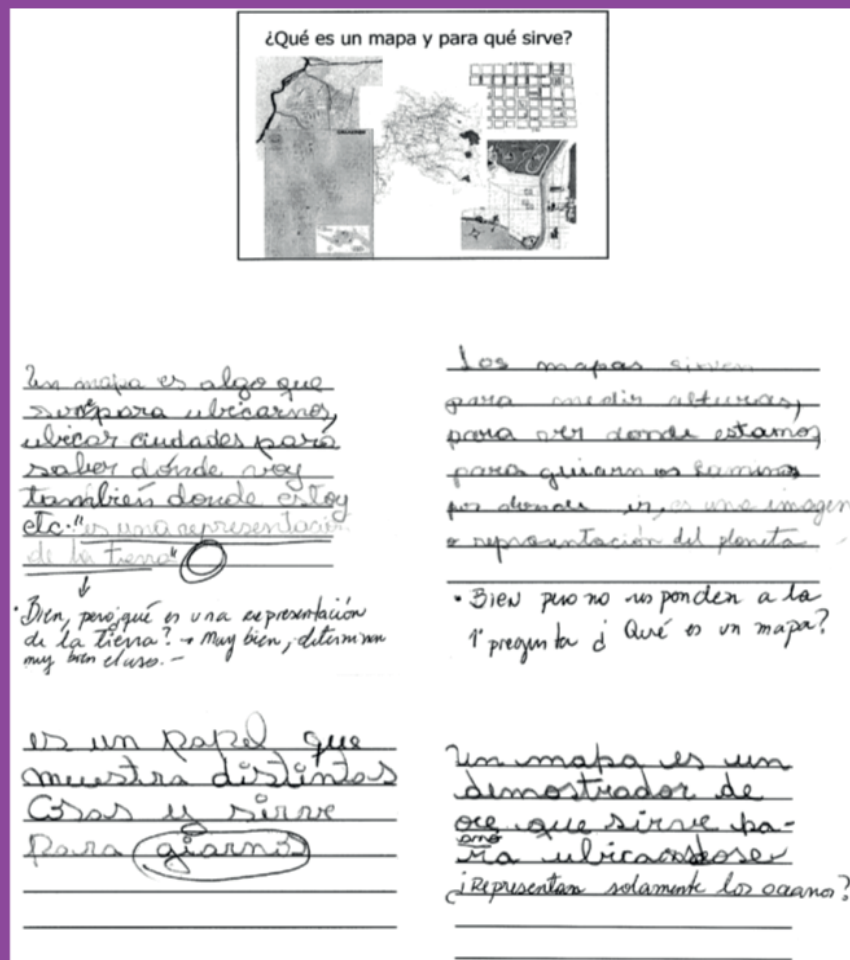 ¿Qué es un mapa y para qué sirve?
Un mapa es algo que
sirve para ubicarnos,
ubicar ciudades para
saber dónde voy
también donde estoy
etc. "es una representación
de la tierra"
• Bien, pero ¿qué es una representación
de la tierra? → Muy bien, determinan
muy bien el uso. -
Los mapas sirven
para medir alturas,
para ver donde estamos,
para guiarn os caminos
por donde ir, es una imagen
o representación del planeta
• Bien pero no responden a la
1° pregunta ¿Qué es un mapa?
es un papel que
muestra distintas
cosas y sirve
Para giarnos
Un mapa es un
demostrador de
que sirve pa-
ra
¿Representan solamente los océanos?